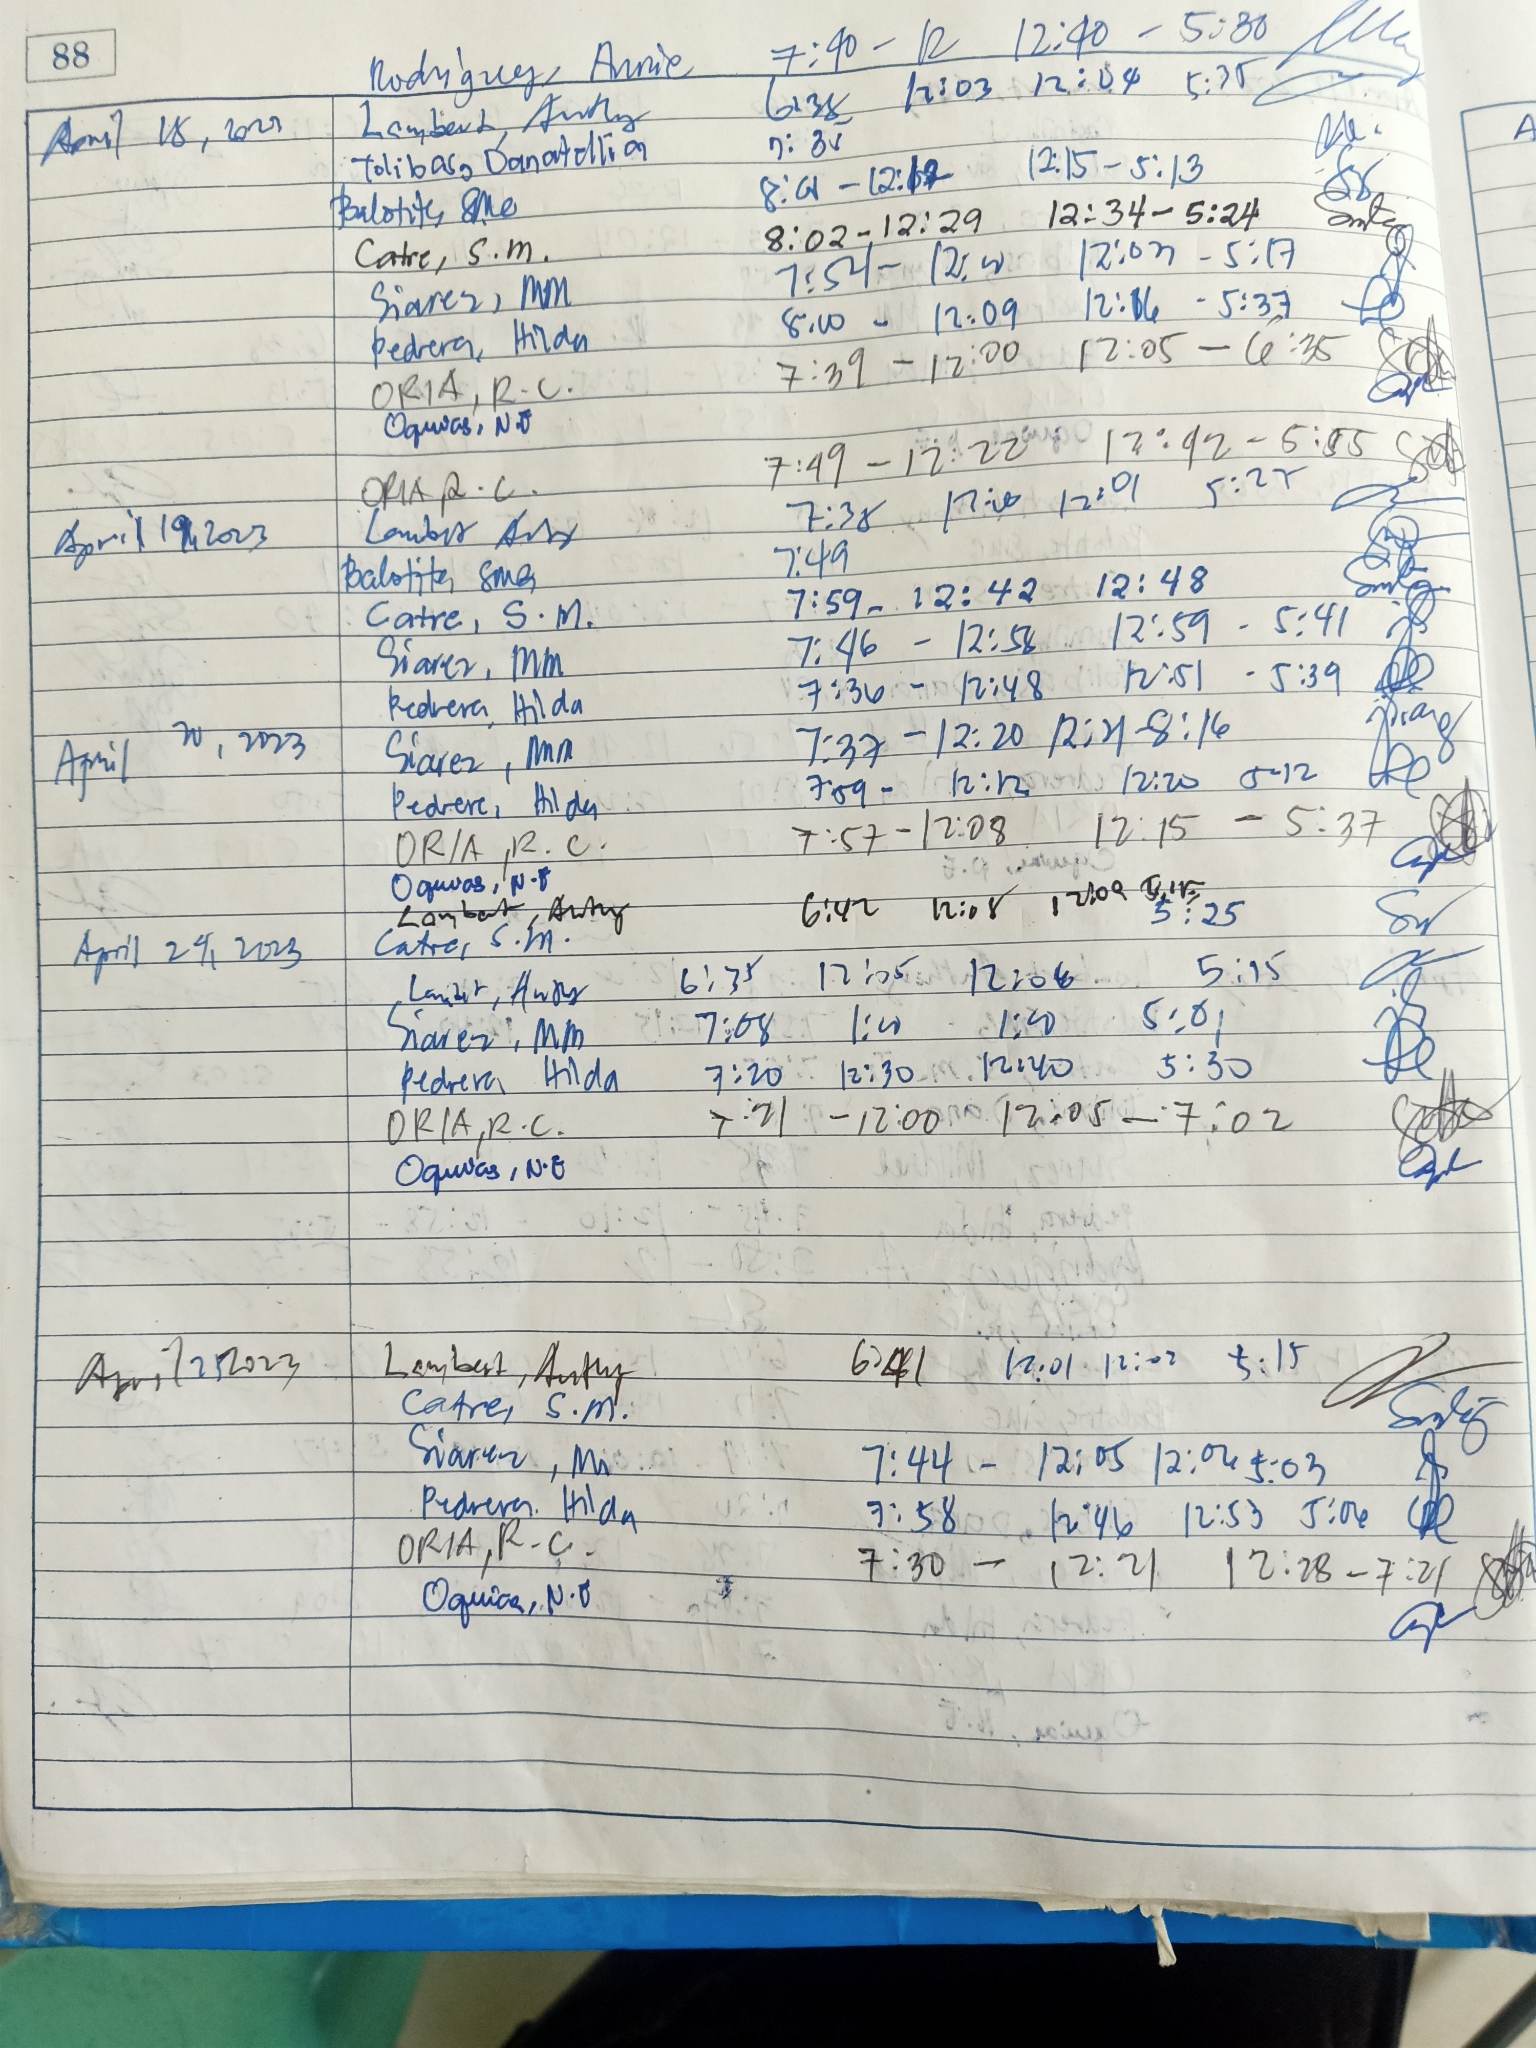 88
Rodriguez, Annie 7:40 - 12 12:40 - 5:30
April 18, 2023 Lambert, 6:38 12:03 12:04 5:35
Tolibas, Danatellia 7:35
Balotite, SMe 8:01 - 12:12 12:15 - 5:13
Catre, S.M. 8:02 - 12:29 12:34 - 5:24
Siarez, MM 7:54 - 5:17
Pedrera, Hilda 8:00 - 12:09 12:16 - 5:37
ORIA, R.C. 7:39 - 12:00 12:05 - 6:35
Oquias, N.E
ORIA R.C. 7:49 - 12:22 12:42 - 5:55
April 19, 2023 Lambert 7:38 12:00 12:01 5:25
Balotite, SMe 7:49
Catre, S.M. 7:59 - 12:42 12:48
Siarez, MM 7:46 - 12:58 12:59 - 5:41
Pedrera, Hilda 7:36 - 12:48 12:51 - 5:39
April 20, 2023 Siarez, MM 7:37 - 12:20 12:21 - 8:16
Pedrera, Hilda 7:59 - 12:12 12:20 5-12
ORIA, R.C. 7:57 - 12:08 12:15 - 5:37
Oquias, N.E
Lambert, 6:42 12:08 12:09
April 24, 2023 Catre, S.M. 5:25
Lambert, 6:35 12:05 12:06 5:15
Siarez, MM 7:08 1:00 - 1:00 5:01
Pedrera, Hilda 7:20 12:30 12:40 5:30
ORIA, R.C. 7:21 - 12:00 12:05 - 7:02
Oquias, N.E
April 25 2023 Lambert, 6:41 12:01 12:02 5:15
Catre, S.M.
Siarez, 7:44 - 12:05 12:06 5:03
Pedrera, Hilda 7:58 12:46 12:53 5:06
ORIA, R.C. 7:30 - 12:21 12:28 - 7:21
Oquias, N.E
A